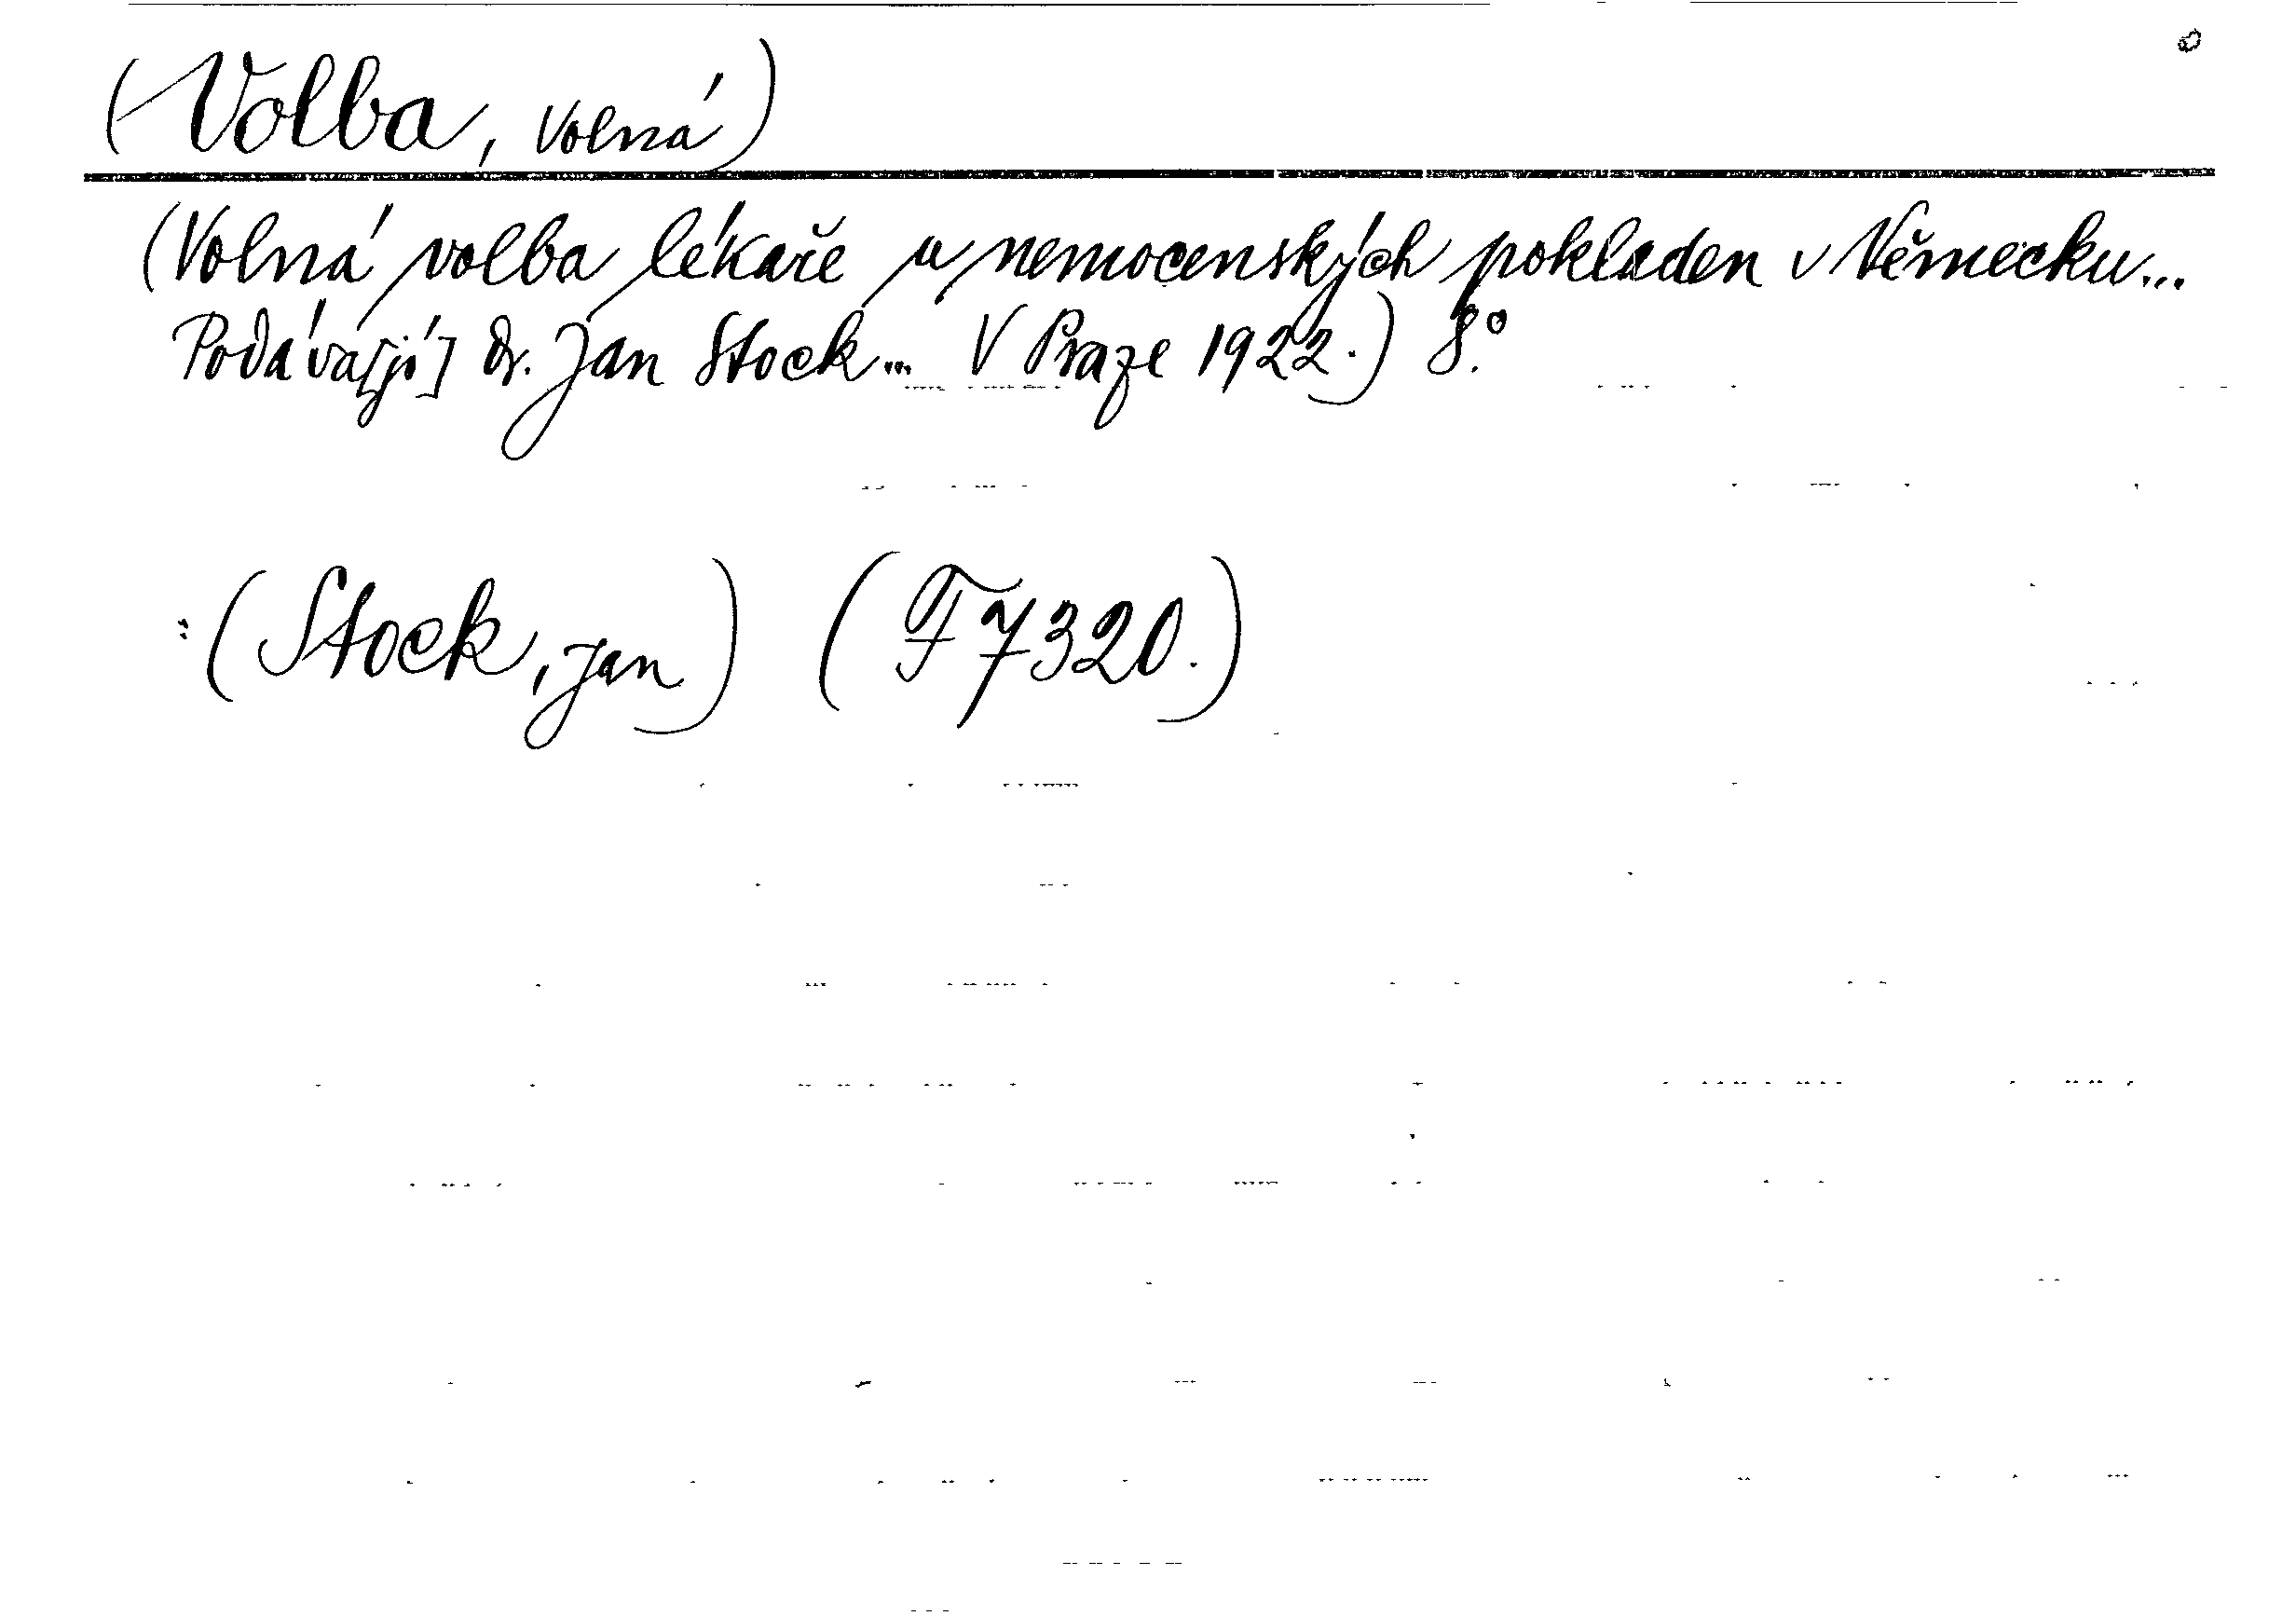 (Volba, volná)
(Volná volba lékaře u nemocenských pokladen v Německu...
Podává[jí] Dr. Jan Stock... V Praze 1922.) 8.°
:(Stock, Jan) (F 7320.)